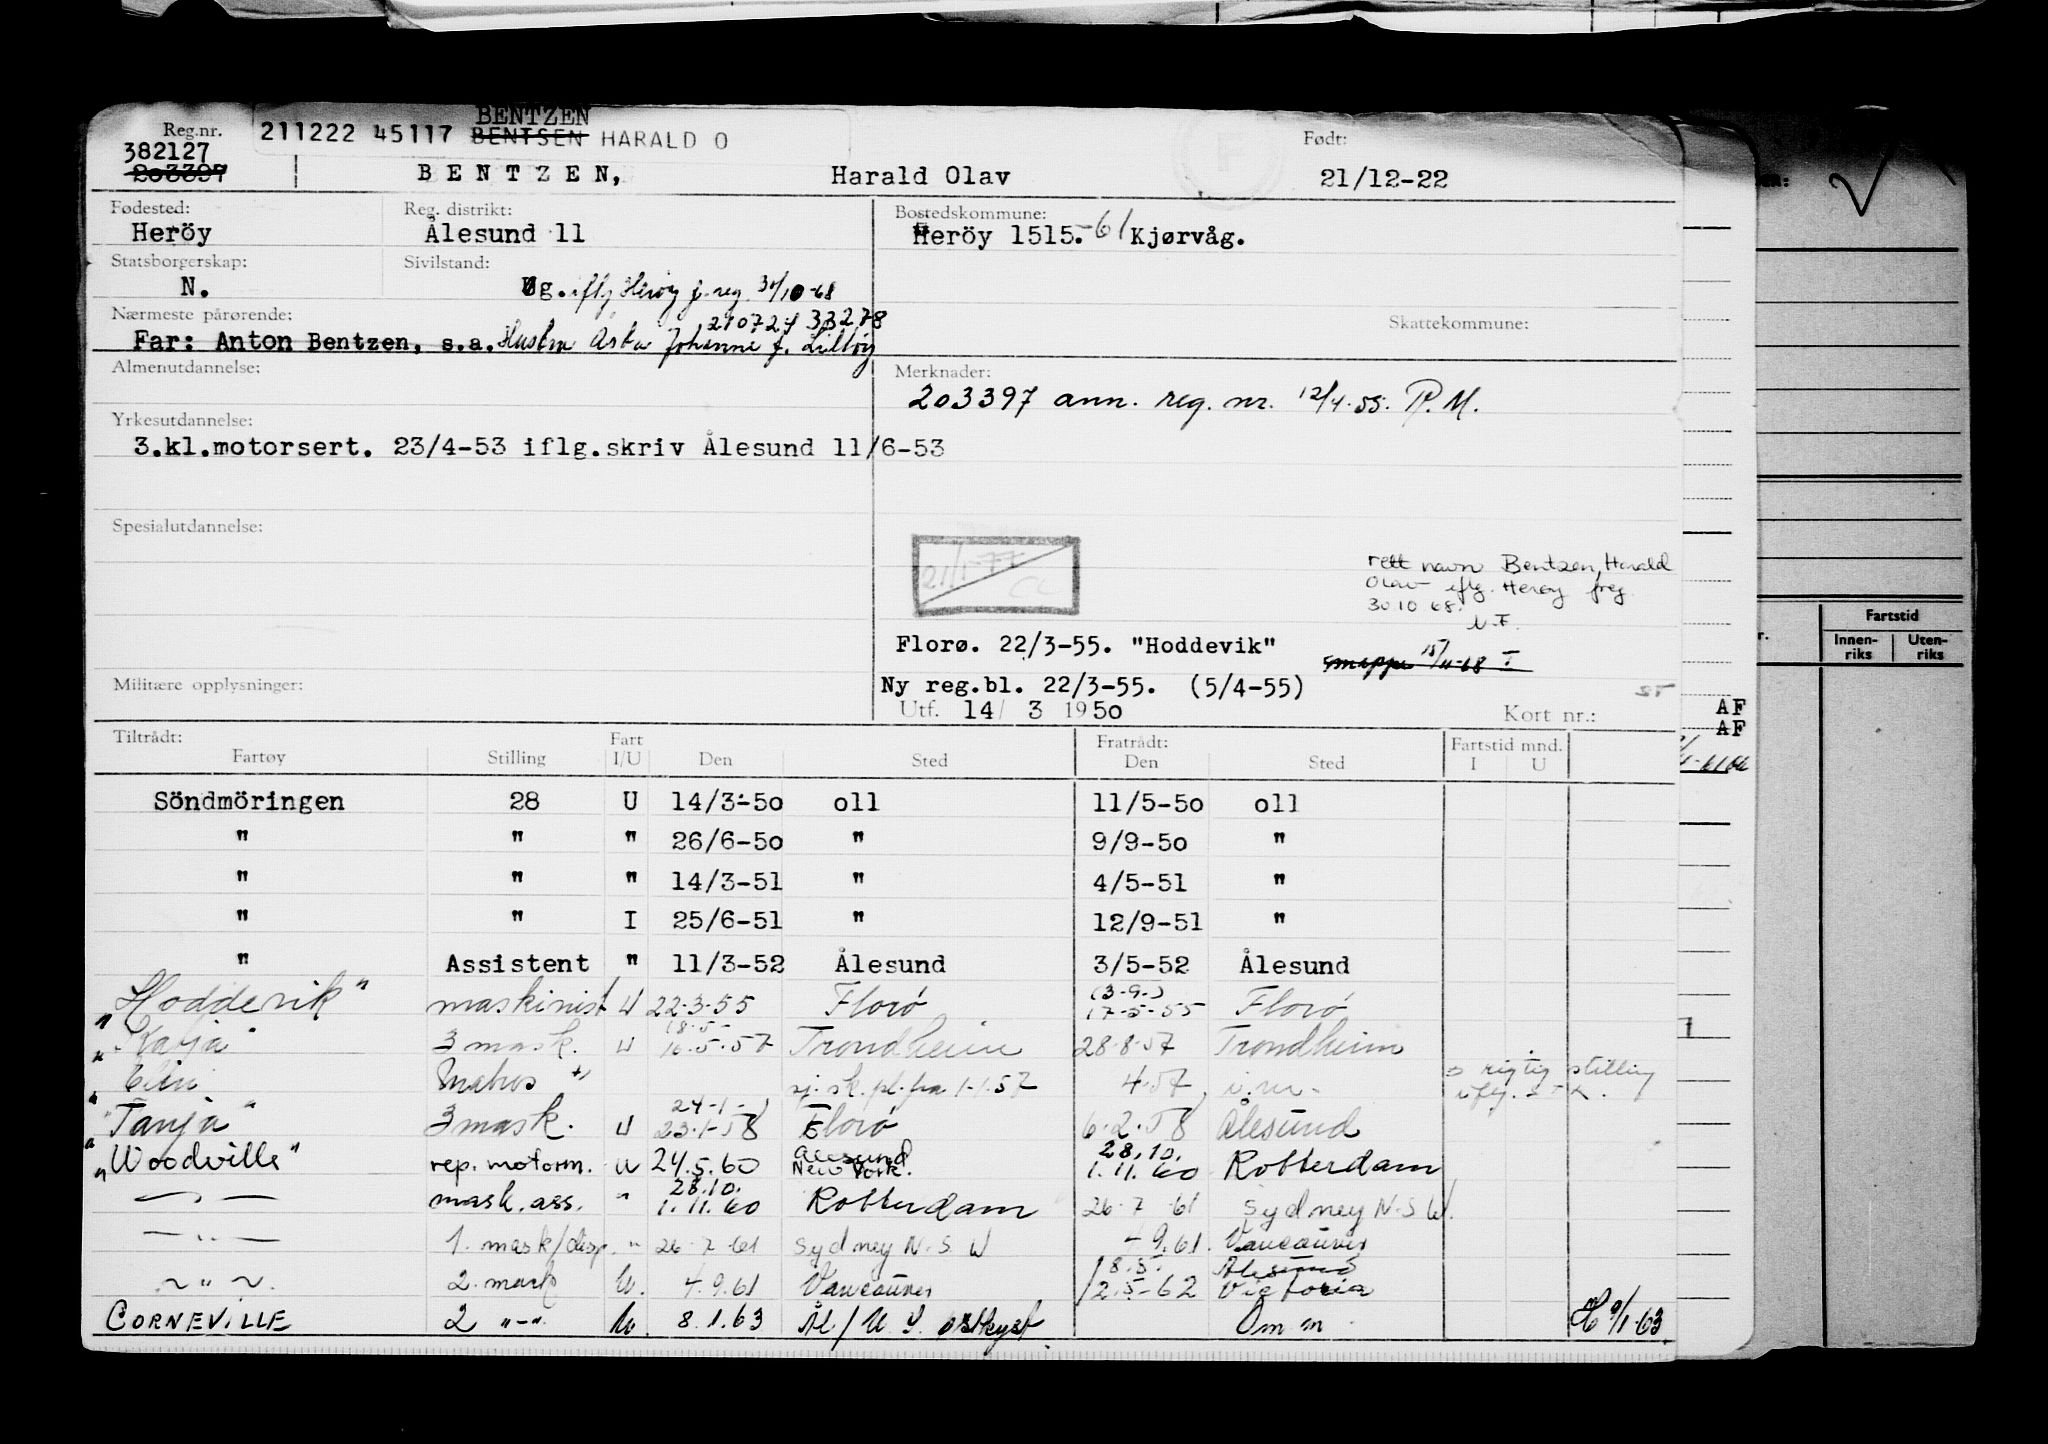 BENTZEN
Reg.nr. 211222 45117 BENTSEN HARALD O Født:
382127
203397 BENTZEN, Harald Olav 21/12-22
Fødested: Reg. distrikt: Bostedskommune:
Heröy Ålesund 11 Heröy 1515.-61 Kjørvåg.
Statsborgerskap: Sivilstand:
N. Ug. iflg Herøy f.reg. 30/10-68
Nærmeste pårørende: 210724 33278 Skattekommune:
Far: Anton Bentzen, s.a. Hustru Johanne f.
Almenutdannelse: Merknader:
203397 ann. reg. nr. 12/4-55. P.M.
Yrkesutdannelse:
3.kl.motorsert. 23/4-53 iflg.skriv Ålesund 11/6-53
Spesialutdannelse:
21/1-77
CL
rett navn Bentzen, Harald
Olav iflg. Herøy freg
30 10 68.
N.F.
Florø. 22/3-55. "Hoddevik"
smappe 15/11-68 T
Militære opplysninger: Ny reg.bl. 22/3-55. (5/4-55)
Utf. 14/ 3 1950 Kort nr.:
AF
AF
Fartstid
Innen-riks Uten-riks
Tiltrådt: Fart Fratrådt: Fartstid mnd.
Fartøy Stilling I/U Den Sted Den Sted I U
Söndmöringen 28 U 14/3-50 oll 11/5-50 oll
" " " 26/6-50 " 9/9-50 "
" " " 14/3-51 " 4/5-51 "
" " I 25/6-51 " 12/9-51 "
" Assistent " 11/3-52 Ålesund 3/5-52 Ålesund
"Hoddevik" maskinist U 22-3-55 Florø (3-9-) 17-5-55 Florø
18-5-
"Karja" 3 mask. U 16.5.57 Trondheim 28-8-57 Trondheim
Matros sj. sk. pl. fra 1-1.57 4-57 rigtig stilling
24-1-
"Tanja" 3 mask. U 23-1-58 Florø 6-2-58 Ålesund
Ålesund 28.10.
"Woodville" rep. motorm. U 24.5.60 New York. 1.11.60 Rotterdam
28.10.
— " — mask. ass. " 1.11.60 Rotterdam 26-7-61 Sydney N.S.W.
— " — 1. mask/disp. " 26-7-61 Sydney N.S.W 4-9.61. Vancouver
18.5. Ålesund
~ " ~. 2. mask U. 4.9.61 Vancouver 12.5-62 Victoria
CORNEVILLE 2 "-" U. 8.1.63 Ål./U.S. østkyst Om m H 9/1-63.